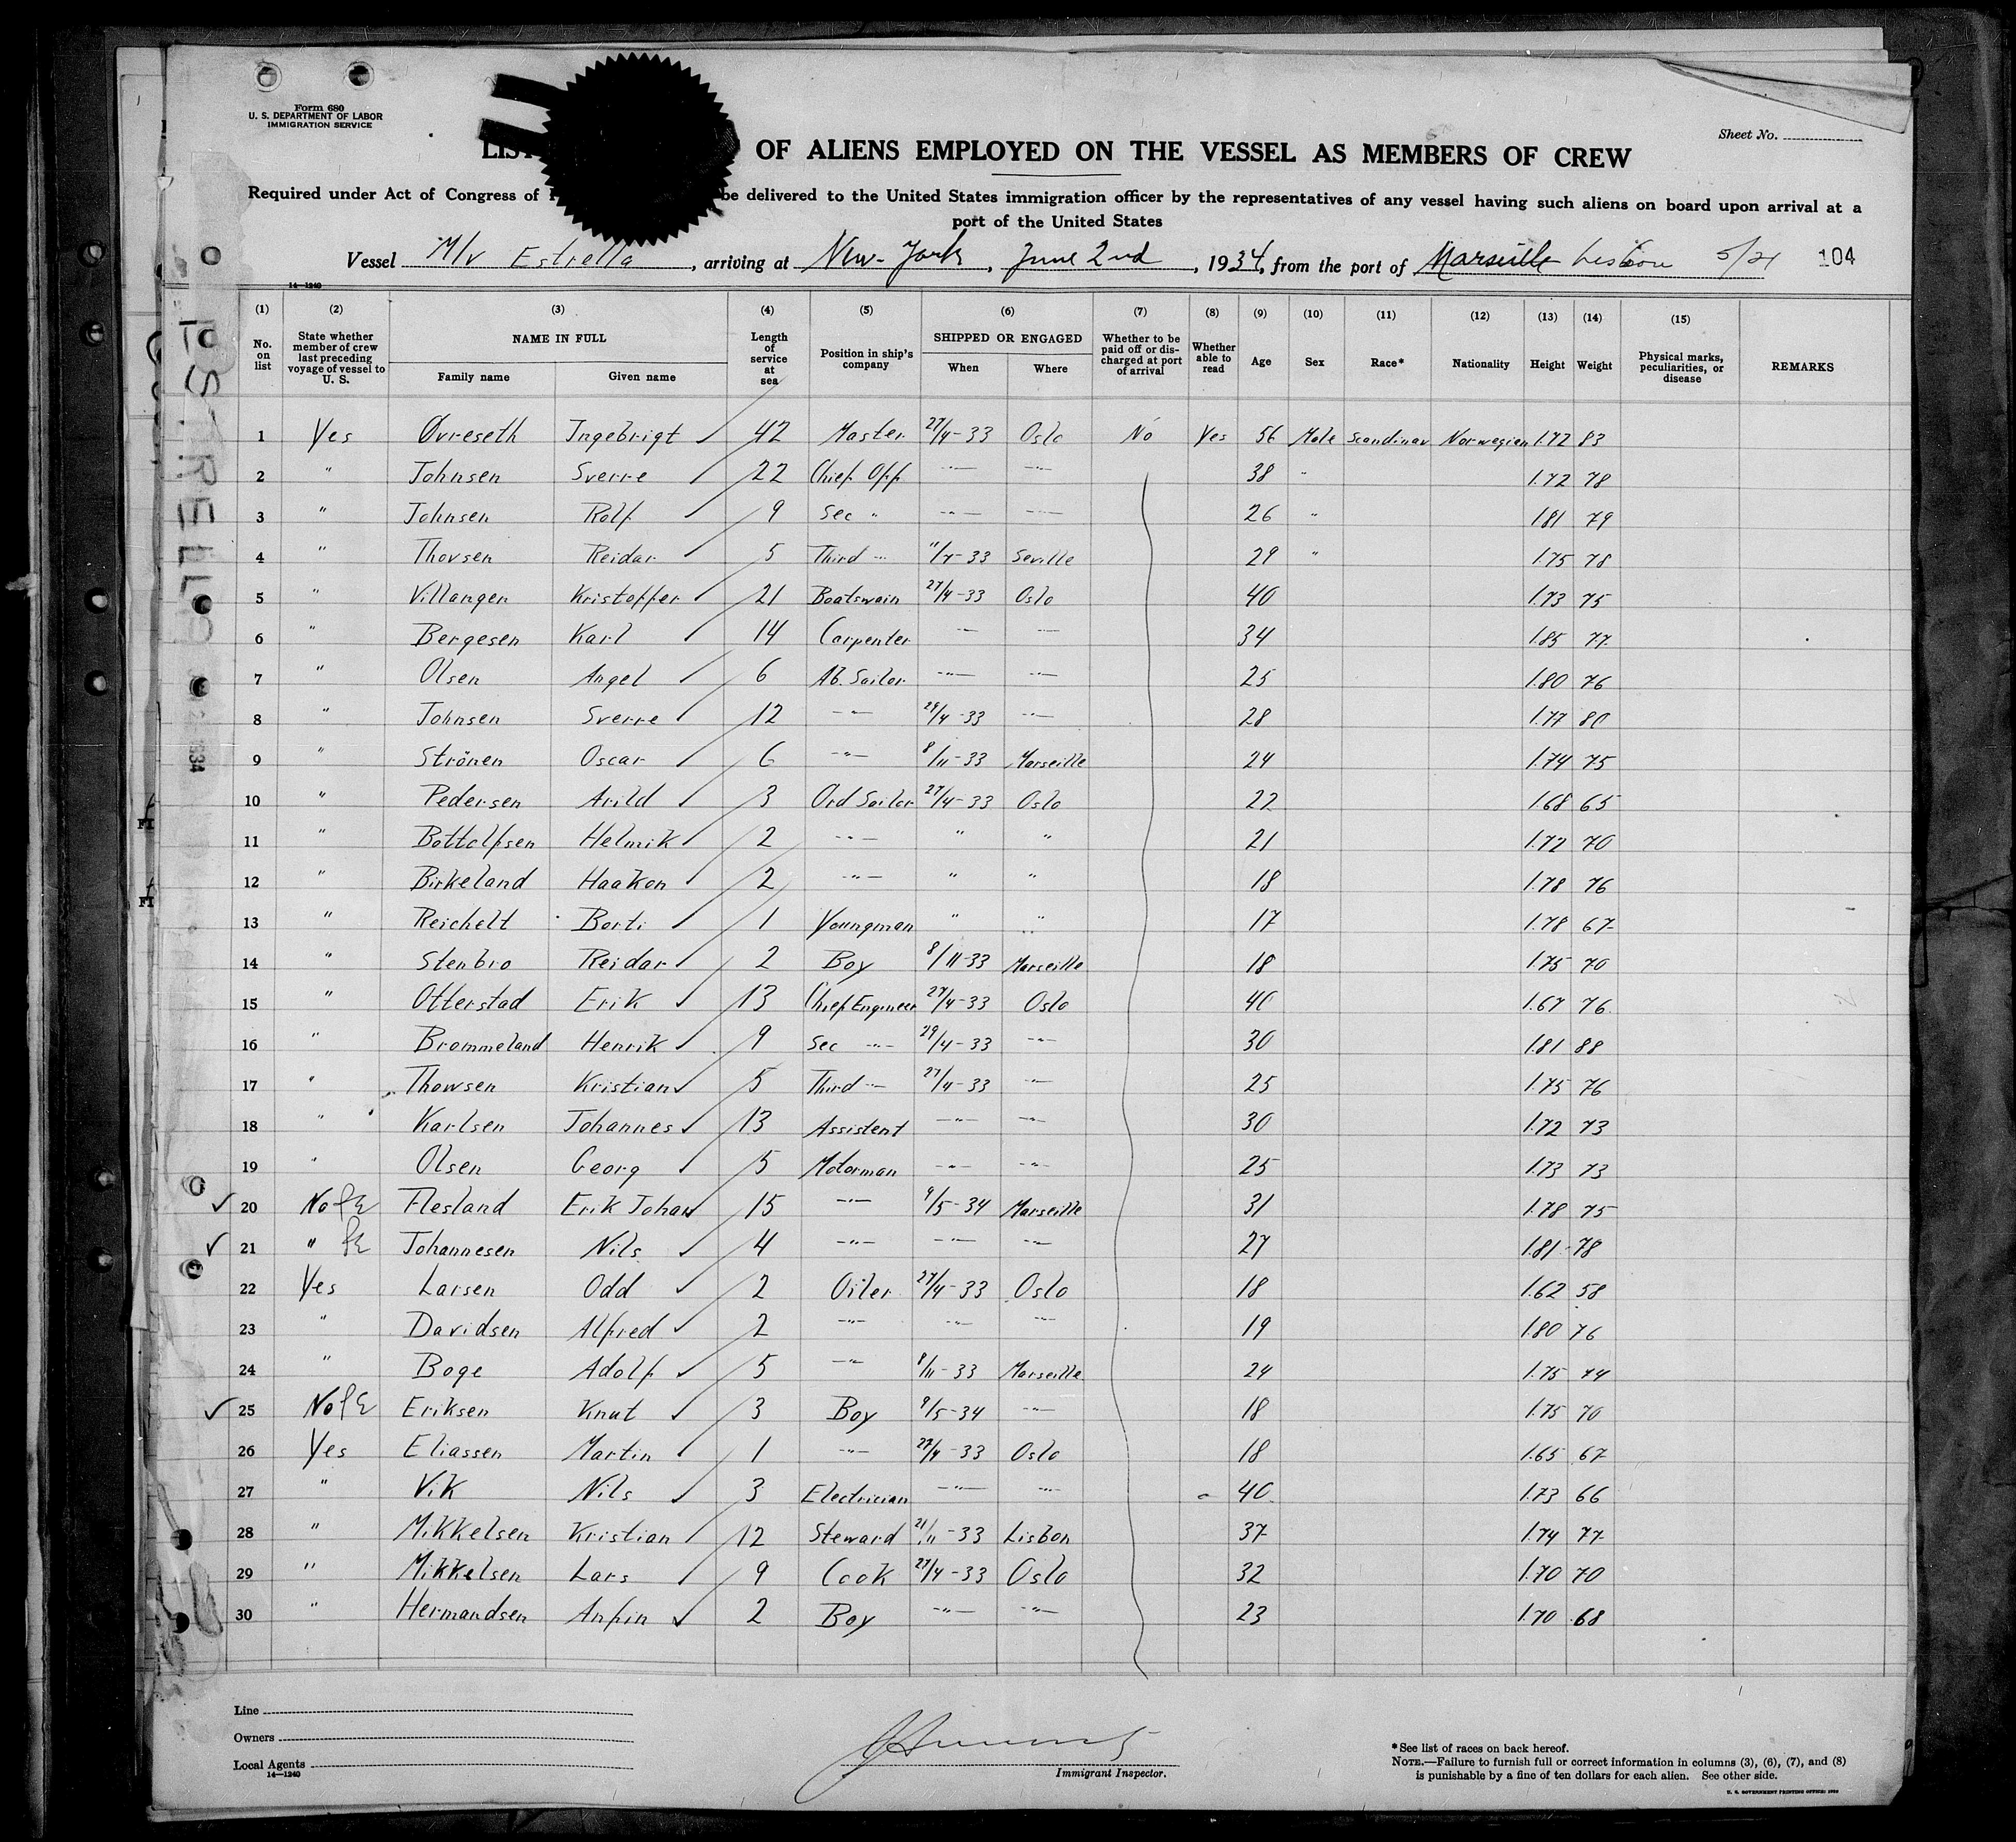 Form 680
U. S. DEPARTMENT OF LABOR
IMMIGRATION SERVICE
Sheet No.
LIST OF ALIENS EMPLOYED ON THE VESSEL AS MEMBERS OF CREW
Required under Act of Congress of be delivered to the United States immigration officer by the representatives of any vessel having such aliens on board upon arrival at a
port of the United States
Vessel M/v Estrella, arriving at New-York, June 2nd, 1934, from the port of Marseille Lisbon 5/21 104
14—1240
(1) (2) (3) (4) (5) (6) (7) (8) (9) (10) (11) (12) (13) (14) (15)
No. on list State whether member of crew last preceding voyage of vessel to U. S. NAME IN FULL Family name Given name Length of service at sea Position in ship's company SHIPPED OR ENGAGED When Where Whether to be paid off or discharged at port of arrival Whether able to read Age Sex Race* Nationality Height Weight Physical marks, peculiarities, or disease REMARKS
1 Yes Øvreseth Ingebrigt 42 Master 27/4-33 Oslo No Yes 56 Male Scandinav Norwegien 1.72 83
2 " Johnsen Sverre 22 Chief Off —"— —"— 38 " 1.72 78
3 " Johnsen Rolf 9 Sec " —"— —"— 26 " 1.81 79
4 " Thovsen Reidar 5 Third —"— 11/7-33 Seville 29 " 1.75 78
5 " Villanger Kristoffer 21 Boatswain 27/4-33 Oslo 40 1.73 75
6 " Bergesen Karl 14 Carpenter —"— —"— 34 1.85 77
7 " Olsen Angel 6 AB. Sailor —"— —"— 25 1.80 76
8 " Johnsen Sverre 12 —"— 29/4-33 —"— 28 1.77 80
9 " Strönen Oscar 6 —"— 8/11-33 Marseille 24 1.74 75
10 " Pedersen Arild 3 Ord Sailor 27/4-33 Oslo 22 1.68 65
11 " Bottolfsen Helmik 2 —"— " " 21 1.72 70
12 " Birkeland Haakon 2 —"— " " 18 1.78 76
13 " Reichelt Berti 1 Youngman " " 17 1.78 67
14 " Stenbro Reidar 2 Boy 8/11-33 Marseille 18 1.75 70
15 " Otterstad Erik 13 Chief Engineer 27/4-33 Oslo 40 1.67 76
16 " Brommeland Henrik 9 Sec —"— 29/4-33 —"— 30 1.81 88
17 " Thowsen Kristian 5 Third —"— 27/4-33 —"— 25 1.75 76
18 " Karlsen Johannes 13 Assistent —"— —"— 30 1.72 73
19 " Olsen Georg 5 Motorman —"— —"— 25 1.73 73
20 No Flesland Erik Johan 15 —"— 9/5-34 Marseille 31 1.78 75
21 " Johannesen Nils 4 —"— —"— —"— 27 1.81 78
22 Yes Larsen Odd 2 Oiler 27/4-33 Oslo 18 1.62 58
23 " Davidsen Alfred 2 —"— —"— —"— 19 1.80 76
24 " Boge Adolf 5 —"— 8/11-33 Marseille 24 1.75 74
25 No Eriksen Knut 3 Boy 9/5-34 —"— 18 1.75 70
26 Yes Eliassen Martin 1 —"— 27/4-33 Oslo 18 1.65 67
27 " Vik Nils 3 Electrician —"— —"— 40 1.73 66
28 " Mikkelsen Kristian 12 Steward 21/11-33 Lisbon 37 1.74 77
29 " Mikkelsen Lars 9 Cook 27/4-33 Oslo 32 1.70 70
30 " Hermandsen Anfin 2 Boy —"— —"— 23 1.70 68
Line
Owners
Local Agents
14—1240
Immigrant Inspector.
*See list of races on back hereof.
NOTE.—Failure to furnish full or correct information in columns (3), (6), (7), and (8)
is punishable by a fine of ten dollars for each alien. See other side.
U. S. GOVERNMENT PRINTING OFFICE:
ESTRELLA